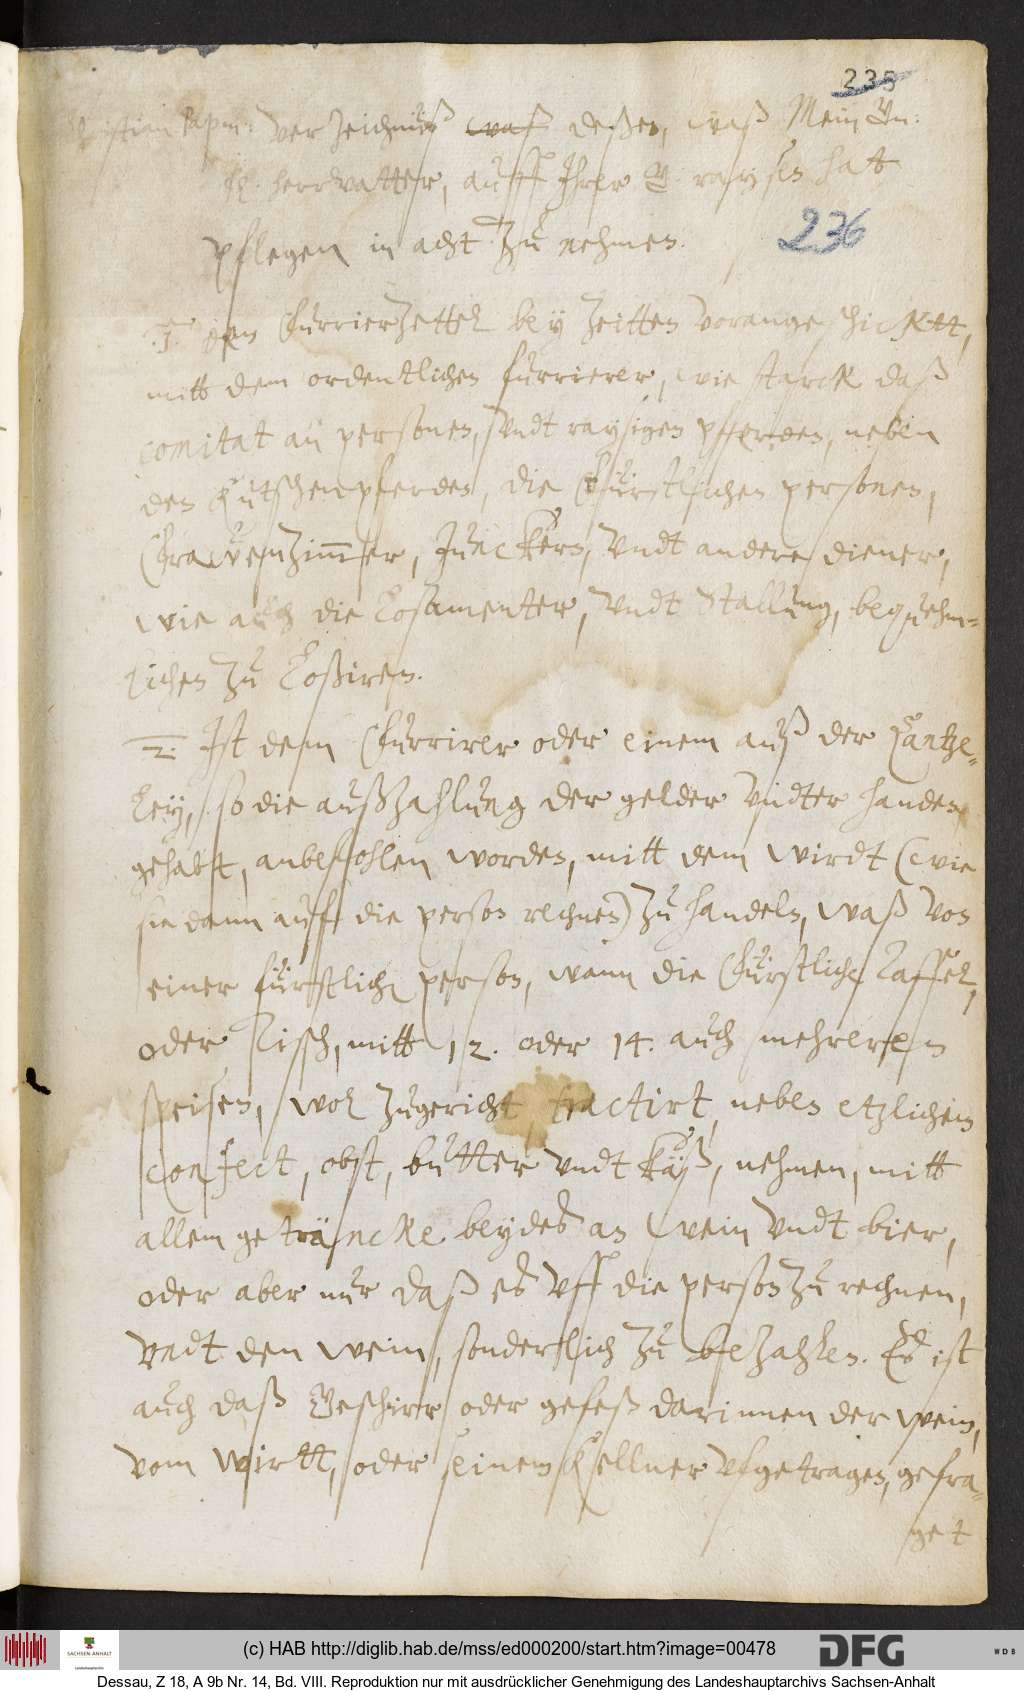 235
Verzeichnüß waß deßen, waß Mein Gn:
herrvatter, auff Ihrer G. raysen hat
pflegen in acht zu nehmen.
236
1. den Furrierzettel bey Zeitten vorangeschicktt,
mitt dem ordentlichen furrierer, wie starck daß
comitat an personen, vndt raysigen pfferden, neben
den Kutschenpferden, die Fürstlichen personen,
Frawenzimmer, Junckern, vndt andere diener,
wie auch die Losamenter, vndt Stallung, bequehm-
lichen zu Loßiren.
2. Ist dem Furrirer oder einem auß der Cantze-
ley, so die außzahlung der gelder vndter handen
gehabt, anbefohlen worden, mitt dem Wirdt (wie
sie dann auff die person rechnen) zu handeln, waß von
einer fürstlichen person, wann die Fürstliche Taffel,
oder Tisch, mitt 12. oder 14. auch mehrerern
speisen, wol zugericht, tractirt, neben etzlichem
Confect, obst, butter vndt käß, nehmen, mitt
allem geträncke beydes an Wein vndt bier,
oder aber nur daß es vff die person zu rechnen,
vndt den wein, sonderlich zu bezahlen. Es ist
auch daß Geschirr oder gefeß darinnen der wein,
vom Wirtt, oder seinem Kellner vfgetragen, gefra-
get
(c) HAB http://diglib.hab.de/mss/ed000200/start.htm?image=00478
SACHSEN-ANHALT
Landeshauptarchiv
DFG
WDB
Dessau, Z 18, A 9b Nr. 14, Bd. VIII. Reproduktion nur mit ausdrücklicher Genehmigung des Landeshauptarchivs Sachsen-Anhalt